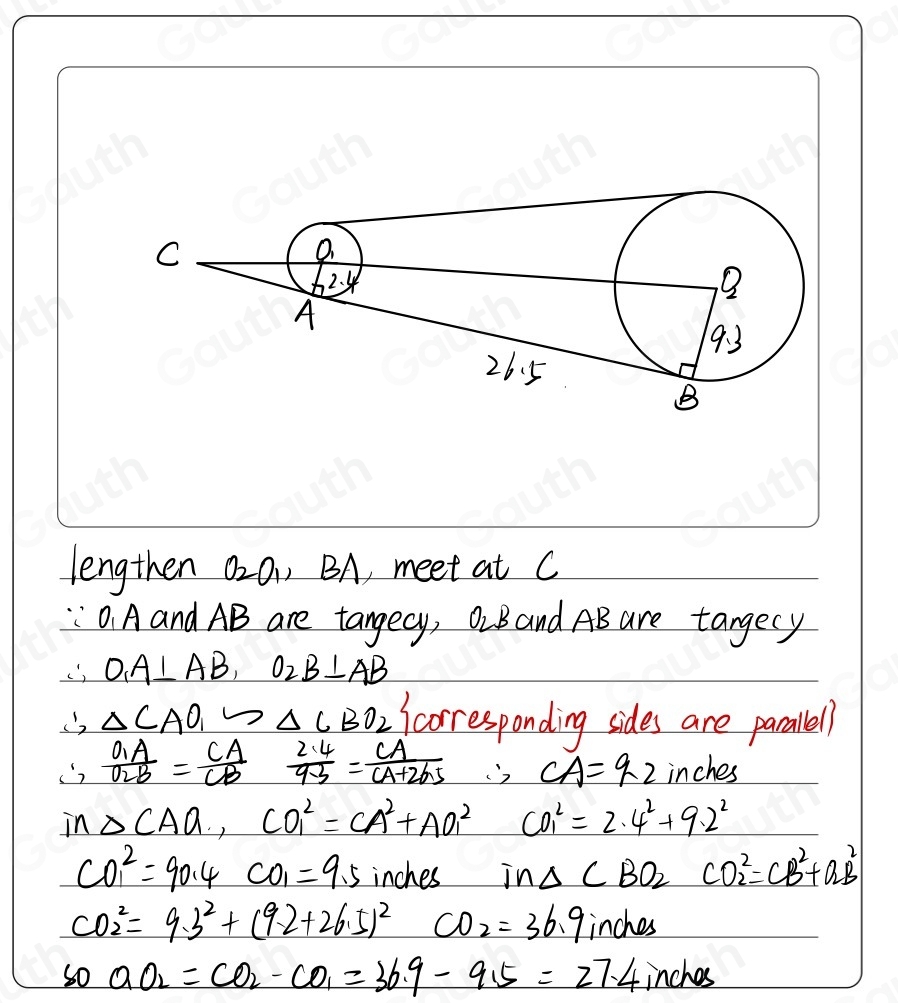 C
O₁
2.4
A
O₂
9.3
26.5
B
lengthen O₂O₁, BA, meet at C
∵ O₁A and AB are tangecy, O₂B and AB are tangecy
∴ O₁A⊥AB, O₂B⊥AB
∴ △CAO₁ ∽ △CBO₂ {corresponding sides are parallel}
∴ O₁A/O₂B = CA/CB 2.4/9.3 = CA/(CA+26.5) ∴ CA = 9.2 inches
in △CAO₁, CO₁² = CA² + AO₁² CO₁² = 2.4² + 9.2²
CO₁² = 90.4 CO₁ = 9.5 inches in △ CBO₂ CO₂² = CB² + O₂B²
CO₂² = 9.3² + (9.2+26.5)² CO₂ = 36.9 inches
so O₁O₂ = CO₂ - CO₁ = 36.9 - 9.5 = 27.4 inches